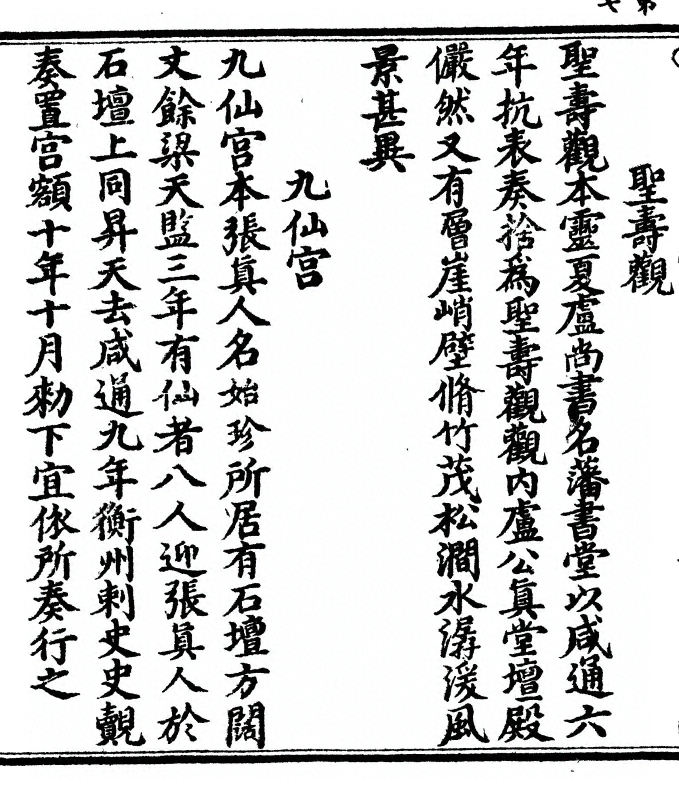 聖壽觀
聖壽觀本靈夏盧尚書名藩書堂以咸通六
年抗表奏捨爲聖壽觀觀内盧公眞堂壇殿
儼然又有層崖峭壁脩竹茂松澗水潺湲風
景甚異
九仙宫
九仙宫本張眞人名始珍所居有石壇方闊
丈餘梁天監三年有仙者八人迎張眞人於
石壇上同昇天去咸通九年衡州刺史史覿
奏置宫額十年十月勑下宜依所奏行之